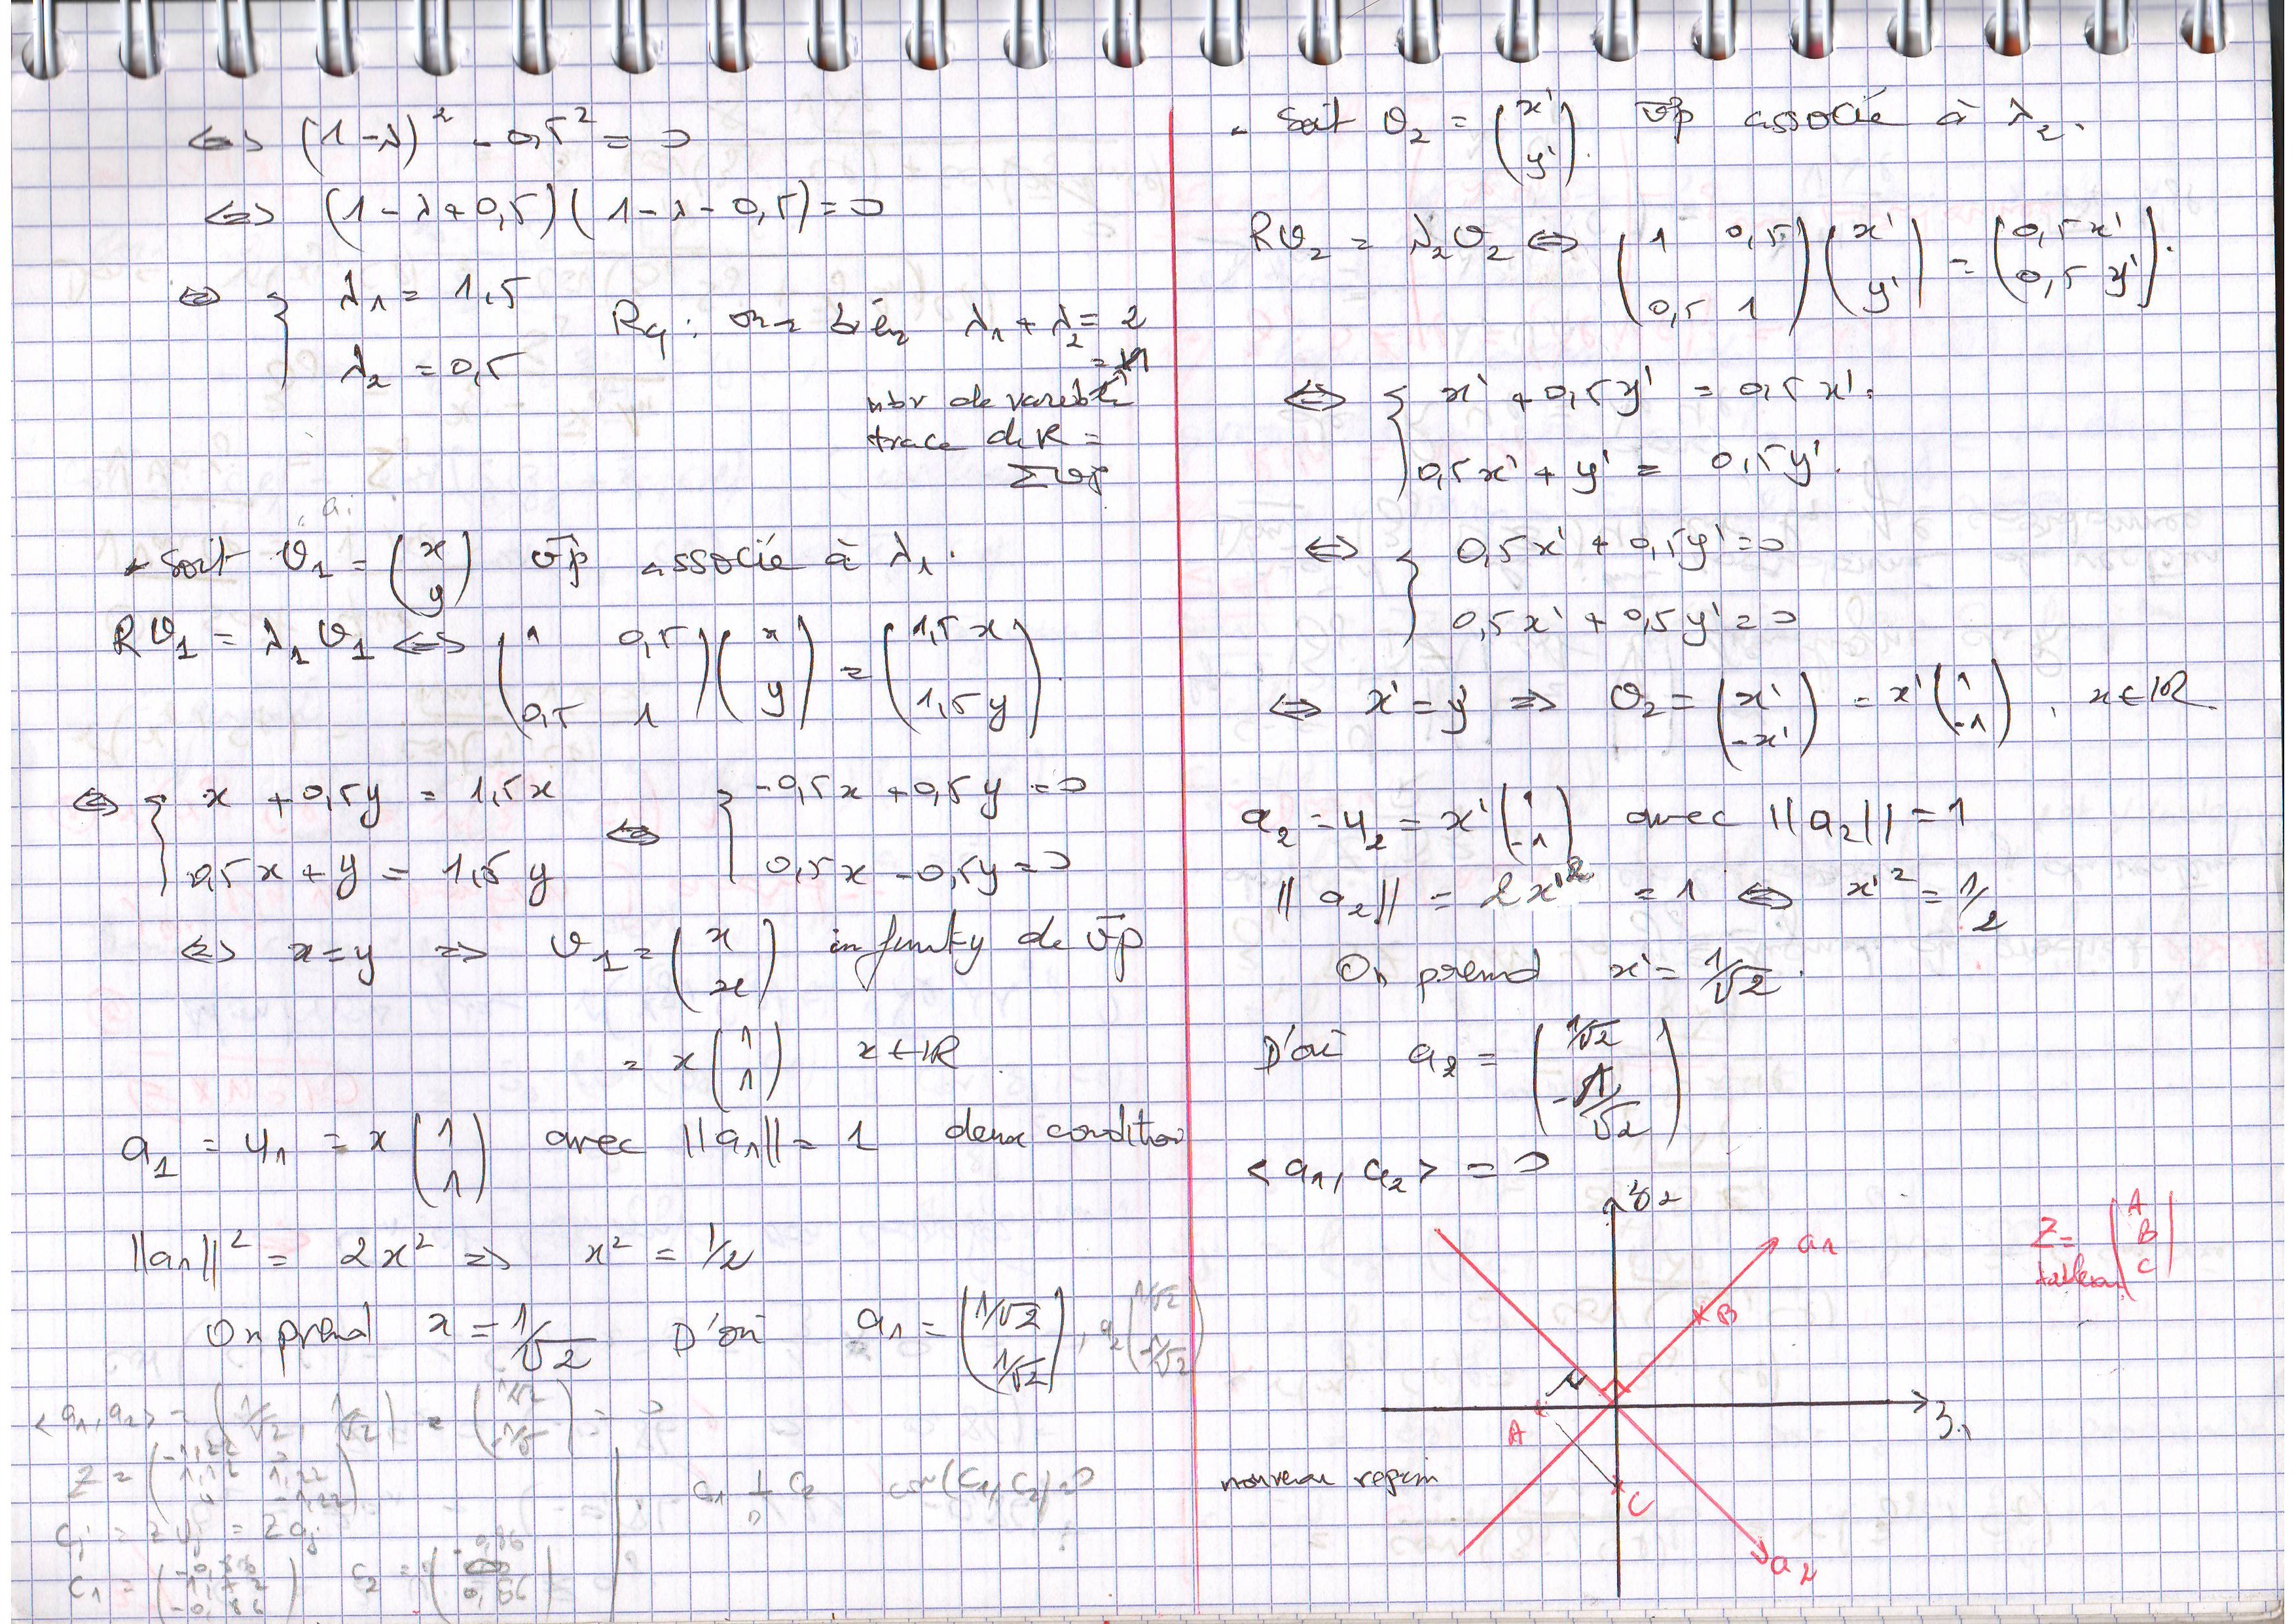 ⇔ (1-λ)² - 0,5² = 0
⇔ (1-λ+0,5)(1-λ-0,5) = 0
⇔ { λ₁ = 1,5
λ₂ = 0,5
Rq : on a bien λ₁ + λ₂ = 2
nbr de variable
trace de R =
Σ vp
- Soit v₁ = (x y) v⃗p associé à λ₁.
R v₁ = λ₁ v₁ ⇔ (1 0,5 0,5 1)(x y) = (1,5x 1,5y)
⇔ { x + 0,5y = 1,5x ⇔ { -0,5x + 0,5y = 0
0,5x + y = 1,5y 0,5x - 0,5y = 0
⇔ x = y ⇒ v₁ = (x x) infinity de v⃗p
= x (1 1) x ∈ ℝ
a₁ = u₁ = x (1 1) avec ||a₁|| = 1 deux condition
||a₁||² = 2x² ⇒ x² = 1/2
On prend x = 1/√2 D'où a₁ = (1/√2 1/√2), a₂ (1/√2 -1/√2)
<a₁, a₂> = (1/√2, 1/√2) = (1/√2 -1/√2) = 0
Z = (-1,22 0 1,22 1,22 0 -1,22)
cj = Z uj = Z aj
c₁ = (-0,86 1,72 -0,86) c₂ = (-0,86 0 0,86)
c₁ ⊥ c₂ cov(c₁, c₂) = 0
- Soit v₂ = (x' y'). v⃗p associé à λ₂.
R v₂ = λ₂ v₂ ⇔ (1 0,5 0,5 1)(x' y') = (0,5x' 0,5y').
⇔ { x' + 0,5y' = 0,5x'.
0,5x' + y' = 0,5y'.
⇔ { 0,5x' + 0,5y' = 0
0,5x' + 0,5y' = 0
⇔ x' = y' ⇒ v₂ = (x' -x') = x' (1 -1), x ∈ ℝ
a₂ = u₂ = x' (1 -1) avec ||a₂|| = 1
||a₂|| = 2x'² = 1 ⇔ x'² = 1/2
On prend x' = 1/√2.
D'où a₂ = (1/√2 -1/√2)
<a₁, a₂> = 0
z₂
a₁
B
A
z₁
C
a₂
Z = (A B C)
tableau
nouveau